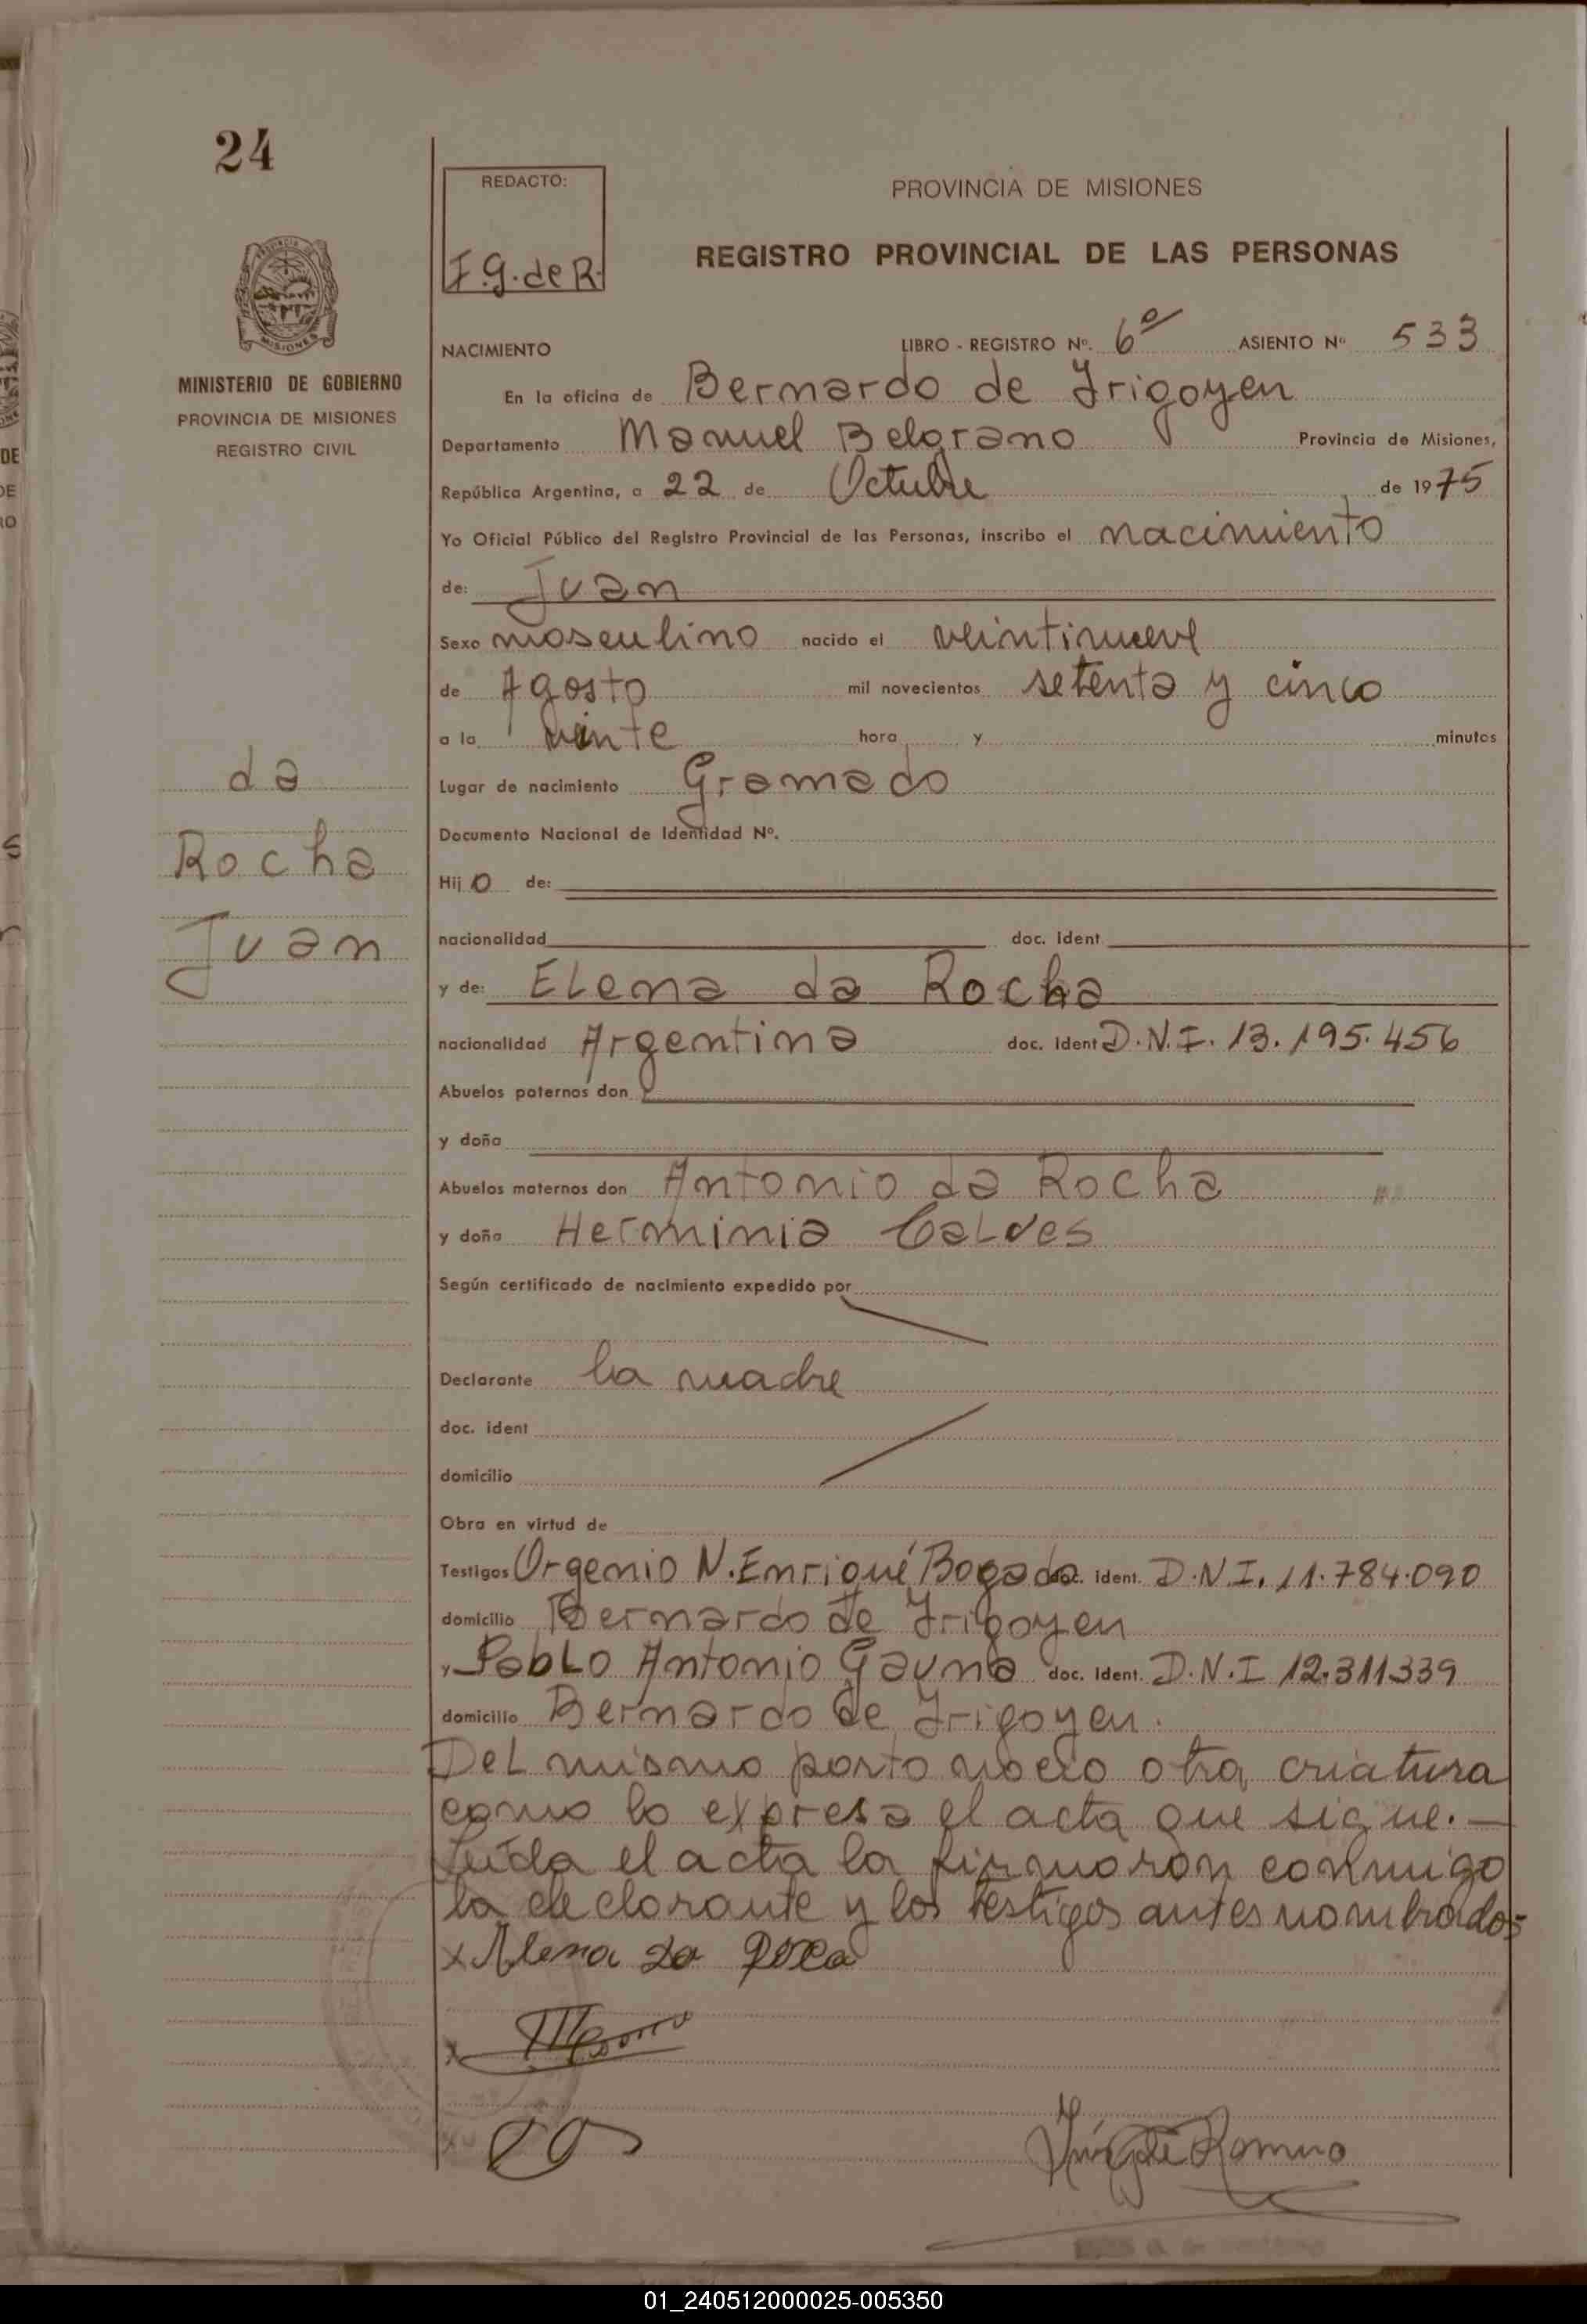 24
REDACTO:
F.G. de R.
PROVINCIA DE MISIONES
REGISTRO PROVINCIAL DE LAS PERSONAS
MINISTERIO DE GOBIERNO
PROVINCIA DE MISIONES
REGISTRO CIVIL
NACIMIENTO LIBRO - REGISTRO Nº. 6º ASIENTO Nº 533
En la oficina de Bernardo de Irigoyen
Departamento Manuel Belgrano Provincia de Misiones,
República Argentina, a 22 de Octubre de 1975
Yo Oficial Público del Registro Provincial de las Personas, inscribo el nacimiento
de: Juan
Sexo masculino nacido el veintinueve
de Agosto mil novecientos setenta y cinco
a la veinte hora y minutos
Lugar de nacimiento Gramado
Documento Nacional de Identidad Nº.
da
Rocha
Juan
Hijo de:
nacionalidad doc. ident
y de: Elena da Rocha
nacionalidad Argentina doc. ident D.N.I. 13.195.456
Abuelos paternos don
y doña
Abuelos maternos don Antonio da Rocha
y doña Herminia Calves
Según certificado de nacimiento expedido por
Declarante la madre
doc. ident
domicilio
Obra en virtud de
Testigos Orgenio N. Enriqué Bogado doc. ident. D.N.I. 11.784.090
domicilio Bernardo de Irigoyen
y Pablo Antonio Gauna doc. Ident. D.N.I 12.311339
domicilio Bernardo de Irigoyen.
Del mismo parto nacio otra criatura
como lo expresa el acta que sigue.—
Leída el acta la firmaron conmigo
la declarante y los testigos antes nombrados
x Elena da Roca
Romero
01_240512000025-005350